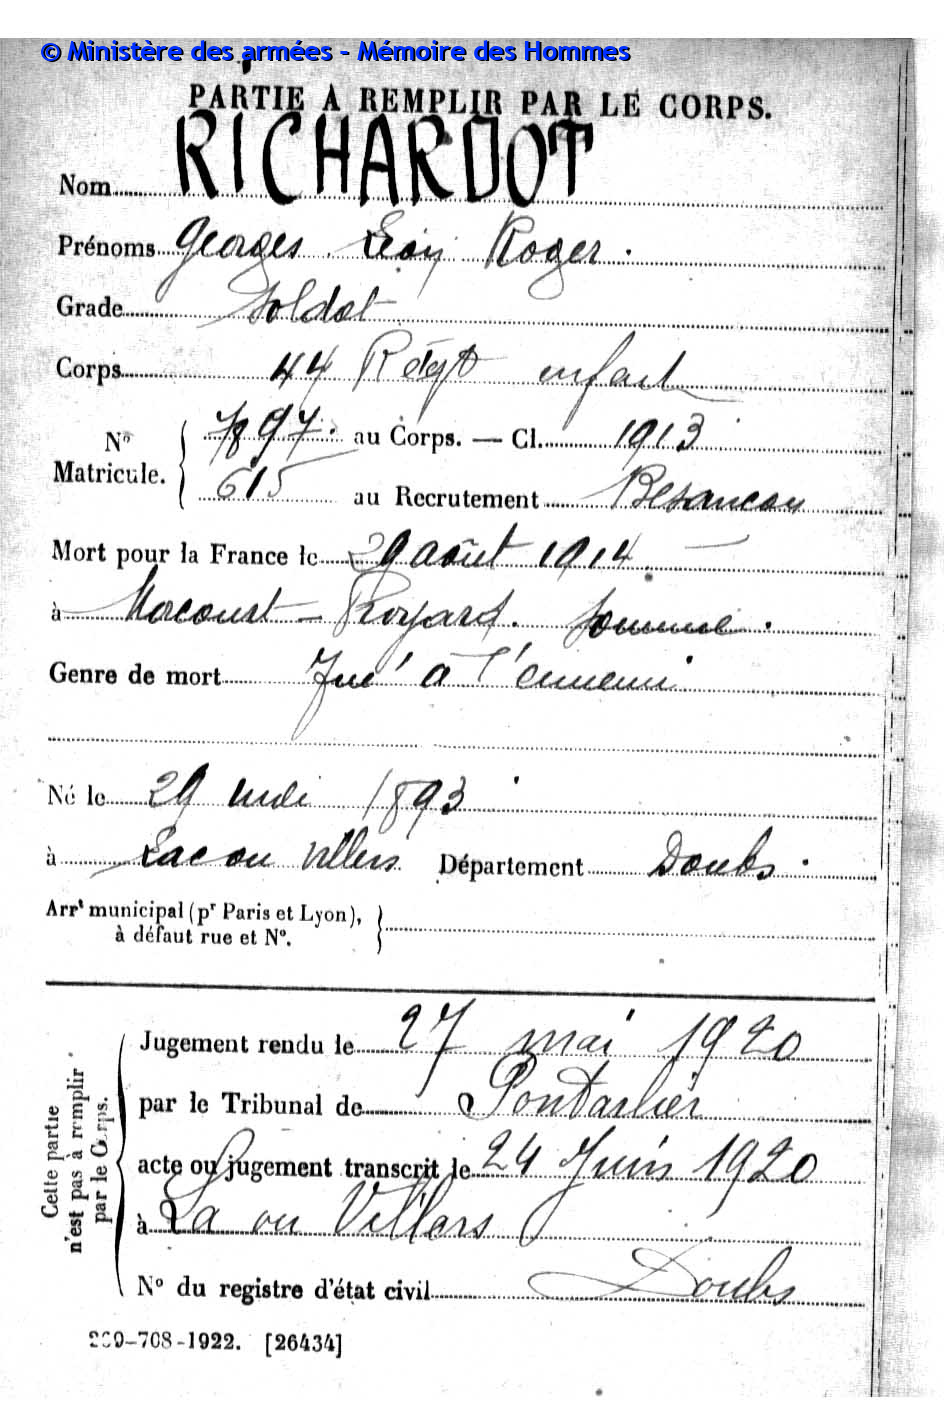 © Ministère des armées - Mémoire des Hommes
PARTIE À REMPLIR PAR LE CORPS.
Nom RICHARDOT
Prénoms Georges Léon Roger.
Grade Soldat
Corps 44 Régt infant
N° Matricule. { 7897. au Corps. — Cl. 1913
615 au Recrutement Besancon
Mort pour la France le 29 août 1914
à Morcourt - Proyard. Somme.
Genre de mort Tué à l'ennemi
Né le 29 mai 1893
à Lac ou Villers Département Doubs.
Arrt municipal (pr Paris et Lyon),
à défaut rue et N°.
Cette partie
n'est pas à remplir
par le Corps.
Jugement rendu le 27 mai 1920
par le Tribunal de Pontarlier
acte ou jugement transcrit le 24 Juin 1920
à La ou Villers
N° du registre d'état civil Doubs
-708-1922. [26434]